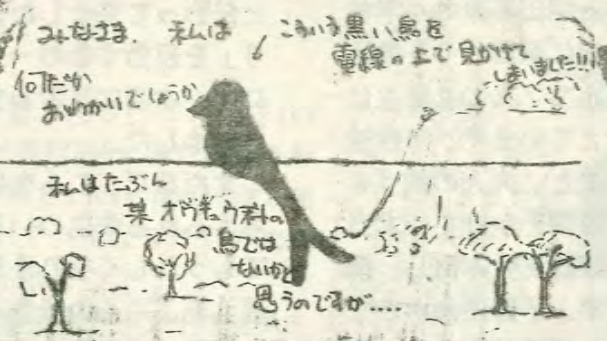 みなさま、私は
こういう黒い鳥を
電線の上で見かけて
しまいました!!!
何だか
おわかりでしょうか
私はたぶん
某オウチュウ科の
鳥では
ないかと
思うのですが....